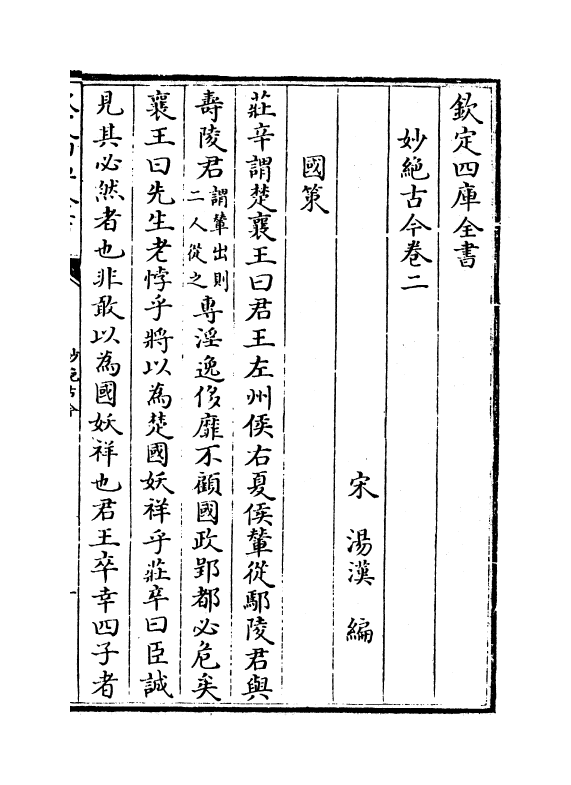 欽定四庫全書
妙絶古今卷二
宋 湯漢 編
國策
莊辛謂楚襄王曰君王左州侯右夏侯輦從鄢陵君與
壽陵君謂輦出則二人從之專淫逸侈靡不顧國政郢都必危矣
襄王曰先生老悖乎將以為楚國妖祥乎莊辛曰臣誠
見其必然者也非敢以為國妖祥也君王卒幸四子者
妙絶古今
一